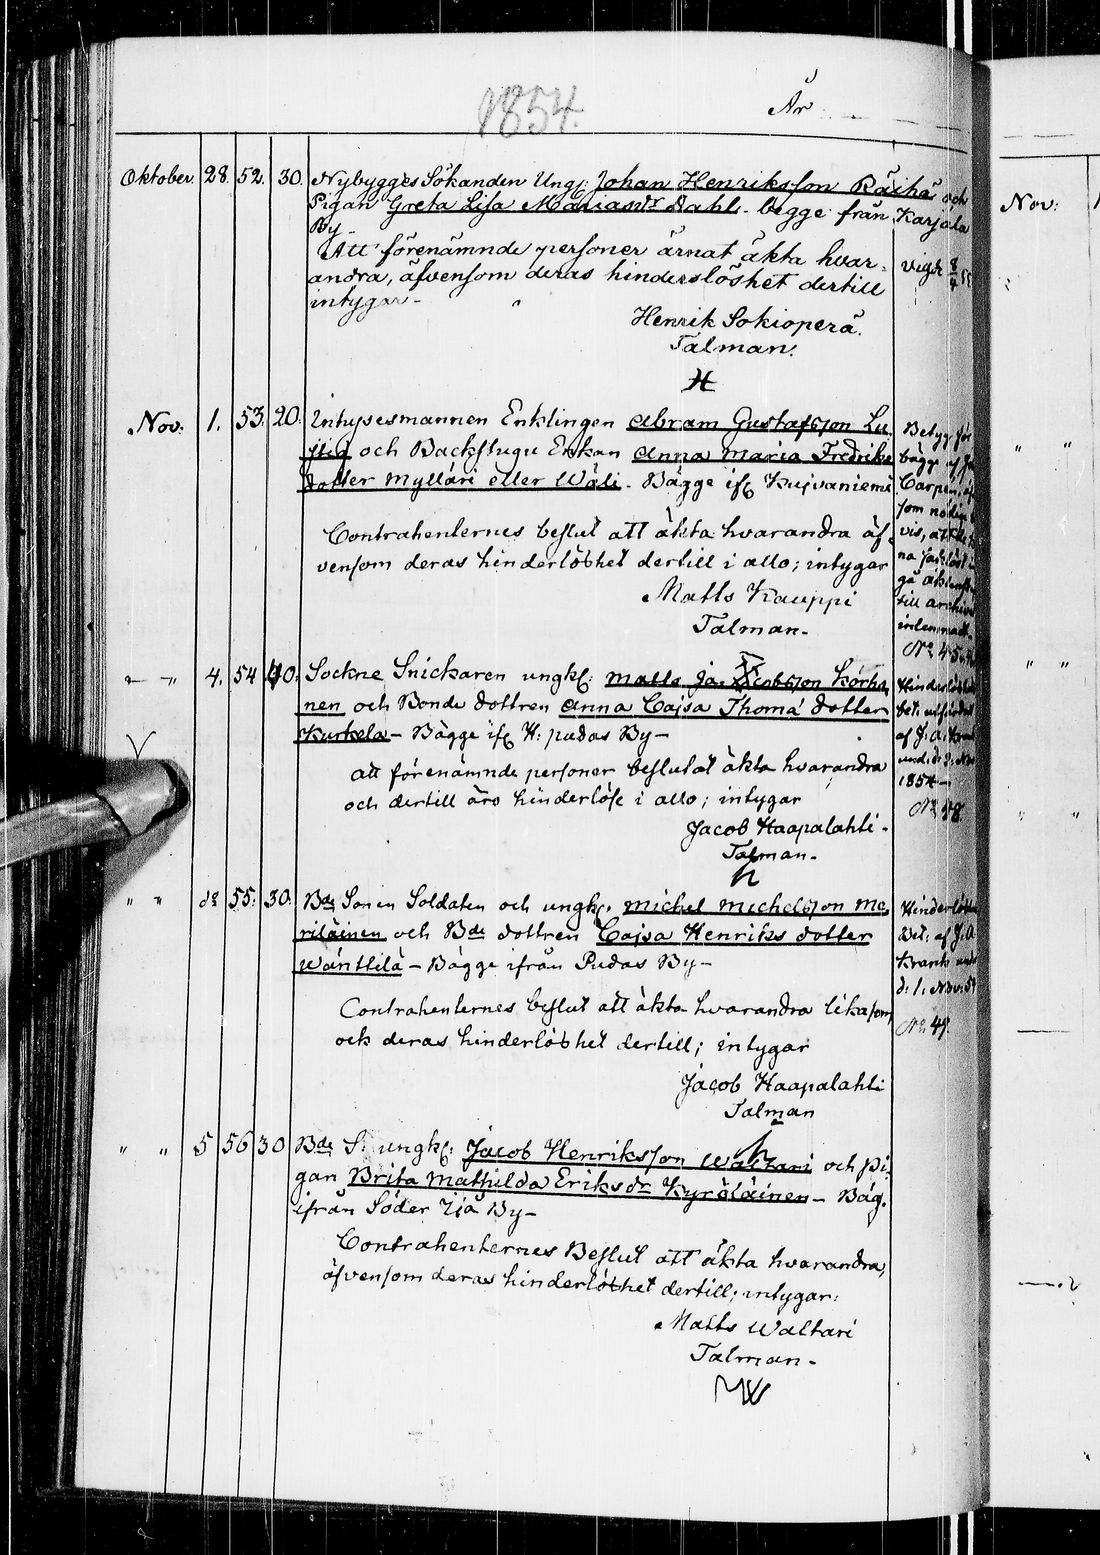 1854.
År
Oktober. 28. 52. 30. Nybygges Sökanden Ungk: Johan Henriksson Räihä och
Pigan Greta Lisa Mariasdr Dahl. begge från Karjala
By.
Att förenämnde personer ärnat äkta hvar-
andra, äfvensom deras hinderslöshet dertill
intygar-
vigde 8/4 55
Henrik Sokioperä.
Talman.
H
Nov. 1. 53. 20. Inhysesmannen Enklingen Abram Gustafsson Lu
stig och Backstugu Enkan Anna Maria Fredriks
dotter Mylläri eller Wäli. Bägge ifr Kujvaniemi
Contrahenternes beslut att äkta hvarandra äf
vensom deras hinderlöshet dertill i allo; intygar
Matts Kauppi
Talman-
Betyg för
bägge af
Carpen. äf
som
vis, att
na
till archive
No 45.
4. 54 40. Sockne Snickaren ungk: Matts Jacobsson Körhö
nen och Bonde dottren Anna Cajsa Thoma dotter
Kurkela- Bägge ifr H: pudas By-
att förenämnde personer beslutat äkta hvarandra
och dertill äro hinderlöse i allo; intygar
Jacob Haapalahti-
Talman-
h
Hinderlöshets
bet: utfärdat
af J. A.
und: d: 2. Nov
1854-
No 48.
" " do 55. 30. Bde Sonen Soldaten och ungk: Michel Michelsson Me
riläinen och Bde dottren Cajsa Henriks dotter
Wänttilä- Bägge ifrån Pudas By-
Contrahenternes beslut att äkta hvarandra likasom
ock deras hinderlöshet dertill; intygar
Jacob Haapalahti
Talman
h
Hinderlöshets
Bet: af J. A
Kranck und
d: 1. Nov. 54
No 49.
" " 5 56 30 Bde S: ungk: Jacob Henriksson Waltari och pi
gan Brita Mathilda Eriksdr Kyröläinen- Bäg.
ifrån Söder Ijå By-
Contrahenternes Beslut att äkta hvarandra,
äfvensom deras hinderlöshet dertill; intygar:
Matts Waltari
Talman-
MW
Nov:
" "
" "
" "